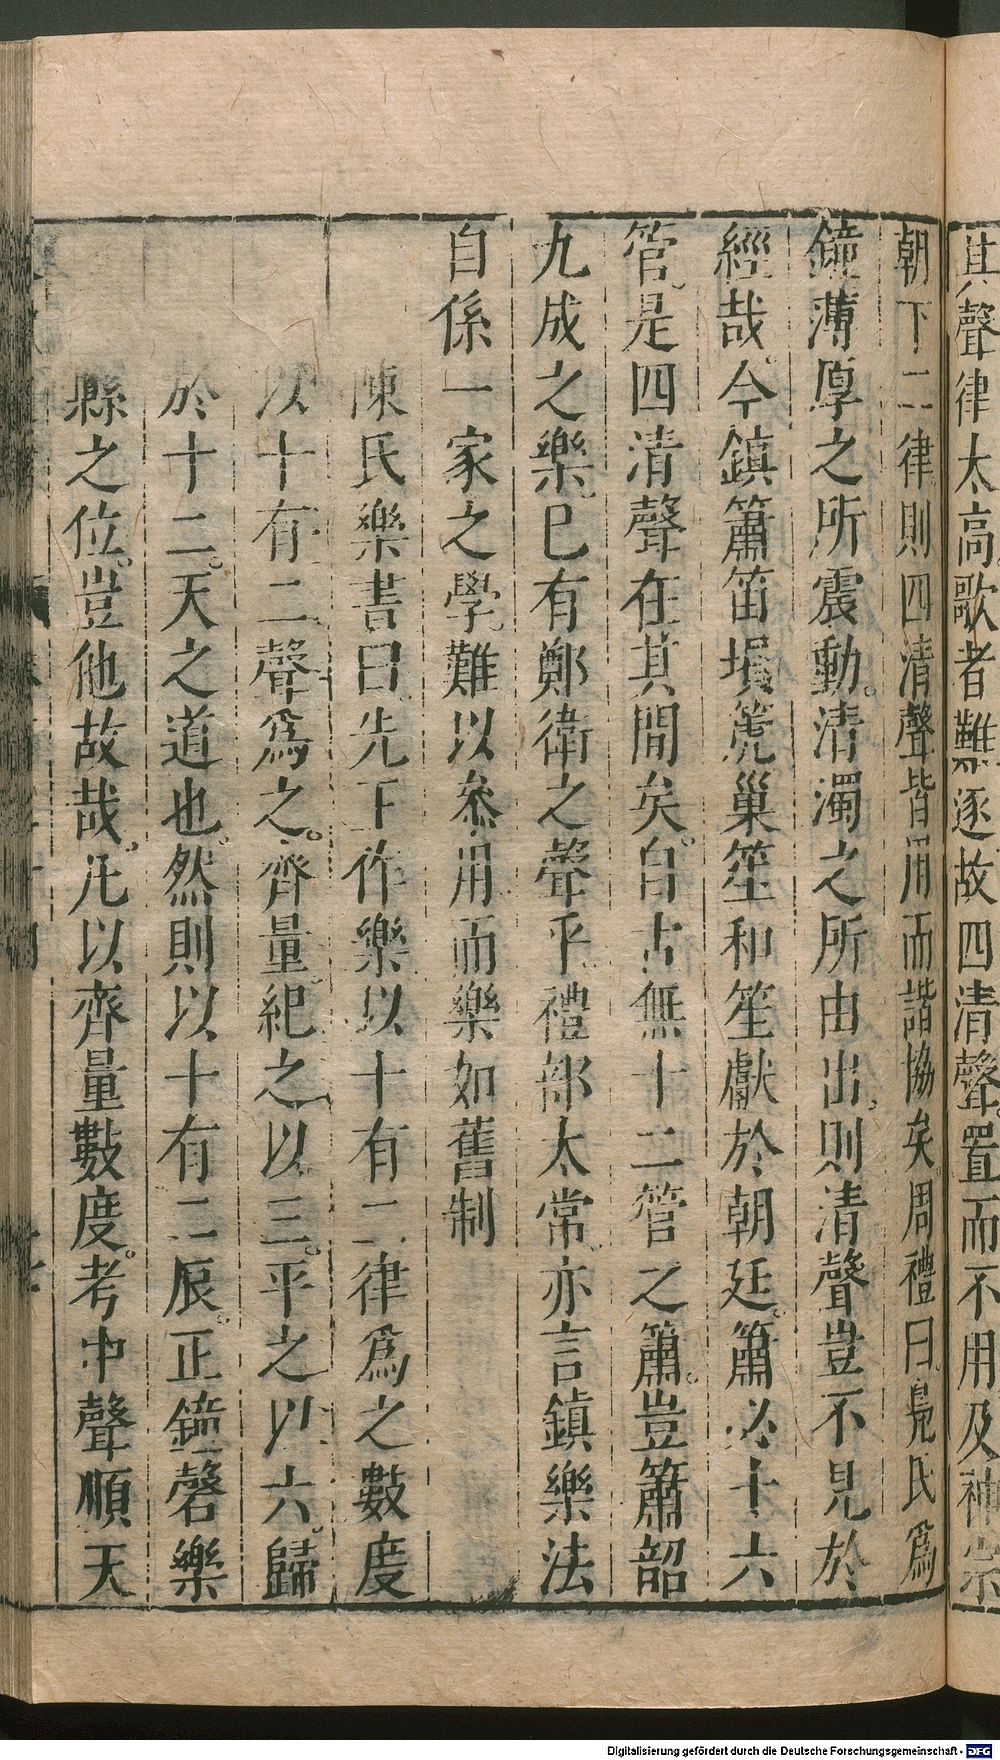 其聲律太高歌者難逐故四清聲置而不用及神宗
朝下二律則四清聲皆用而諧協矣周禮曰鳧氏爲
鐘薄厚之所震動清濁之所由出則清聲豈不見於
經哉今鎮簫笛塤箎巢笙和笙獻於朝廷簫必十六
管是四清聲在其間矣自古無十二管之簫豈簫韶
九成之樂已有鄭衛之聲乎禮部太常亦言鎮樂法
自係一家之學難以叅用而樂如舊制
陳氏樂書曰先王作樂以十有二律爲之數度
以十有二聲爲之齊量紀之以三平之以六歸
於十二天之道也然則以十有二辰正鐘磬樂
縣之位豈他故哉凡以齊量數度考中聲順天
Digitalisierung gefördert durch die Deutsche Forschungsgemeinschaft - DFG